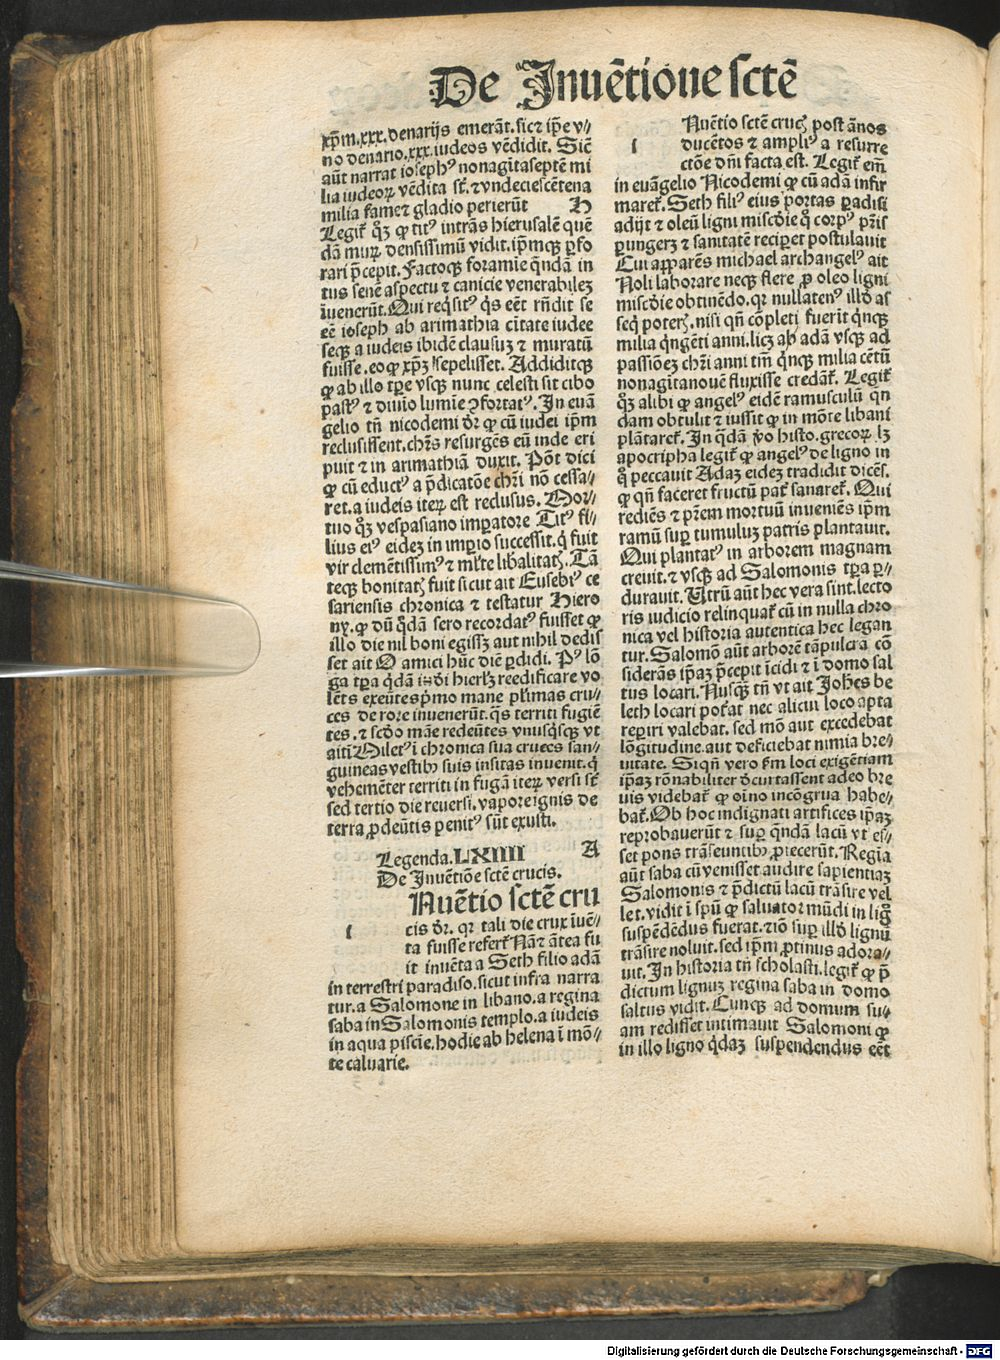 De Inuētione sctē
xp̄m.xxx.denarijs emerāt.sic ⁊ ip̄e v/
no denario.xxx.iudeos vēdidit. Sic̄
aūt narrat ioseph⁹ nonagītaseptē mi
lia iudeoꝝ vēdita st̄.⁊ vndeciescētena
milia fame ⁊ gladio perierūt H
Legit̄ qͦꝫ ꝙ tit⁹ intrās hierusalē quē
dā murꝫ densissimū vidit.ip̄mqꝫ ꝑfo
rari p̄cepit.Factoqꝫ foramīe qͥndā in
tus senē aspectu ⁊ canicie venerabilez
īuenerūt.Qui reqͥsit⁹ qͥs eēt rn̄dit se
eē ioseph ab arimathia cītate iudee
seqꝫ a iudeis ibidē clausuꝫ ⁊ muratū
fuisse.eo ꝙ xp̄ꝫ sepelisset.Addiditqꝫ
ꝙ ab illo tꝑe vsqꝫ nunc celesti sit cibo
past⁹ ⁊ diuīo lumīe ꝯfortat⁹.In euā
gelio tn̄ nicodemi dr̄ ꝙ cū iudei ip̄m
reclusissent.chr̄s resurgēs eū inde eri
puit ⁊ in arimathiā duxit. Pōt dici
ꝙ cū educt⁹ a p̄dicatōe chr̄i nō cessa/
ret.a iudeis iteꝝ est reclusus. Mor/
tuo qͦꝫ vespasiano imꝑatore Tit⁹ fi/
lius ei⁹ eidez in imꝑio successit.qͥ fuit
vir clemētissim⁹ ⁊ ml̄te lib̄alitatꝭ.Tā
teqꝫ bonitatꝭ fuit sicut ait Eusebi⁹ ce
sariensis chronica ⁊ testatur Hiero
ny.ꝙ dū qͣdā sero recordat⁹ fuisset ꝙ
illo die nil boni egissꝫ aut nihil dedis
set ait O amici hūc diē ꝑdidi. P⁹ lō
ga tꝑa qͥdā iudi hierl̄ꝫ reedificare vo
lētes exeūtes pͥmo mane pl̄imas cru/
ces de rore inuenerūt.qͣs territi fugiē
tes.⁊ scd̄o māe redeūtes vnusqͥsqꝫ vt
ait Milet⁹ ī chronica sua cruces san/
guineas vestibꝰ suis insitas inuenit.qͥ
vehemēter territi in fugā iteꝝ versi st̄
sed tertio die reuersi.vapore ignis de
terra ꝓdeūtis penit⁹ sūt exusti.
Legenda.LXIIII A
De Inuētiōe sctē crucis.
i Nuētio sctē cru
cis dr̄.qꝛ tali die crux īuē/
ta fuisse refert̄ Nā ⁊ ātea fu
it inuēta a Seth filio adā
in terrestri paradiso.sicut infra narra
tur.a Salomone in libano.a regina
saba in Salomonis templo.a iudeis
in aqua piscīe.hodie ab helena ī mō/
te caluarie.
i Nuētio sctē crucꝭ post ānos
ducētos ⁊ ampli⁹ a resurre
ctōe dn̄i facta est. Legit̄ em̄
in euāgelio Nicodemi ꝙ cū adā infir
maret̄.Seth fili⁹ eius portas ꝑadisi
adijt ⁊ oleū ligni misc̄die qͦ corp⁹ pr̄is
ꝑungerꝫ ⁊ sanitatē reciꝑet postulauit
Cui apparēs michael archangel⁹ ait
Noli laborare neqꝫ flere ꝓ oleo ligni
misc̄die obtinēdo.qꝛ nullaten⁹ illd̄ as
seqͥ poterꝭ.nisi qn̄ cōpleti fuerīt qͥnqꝫ
milia qͥngēti anni.licꝫ ab adā vsqꝫ ad
passiōeꝫ chr̄i anni tm̄ qͥnqꝫ milia cētū
nonagītanouē fluxisse credāt̄. Legit̄
qͦꝫ alibi ꝙ angel⁹ eidē ramusculū qn
dam obtulit ⁊ iussit ꝙ in mōte libani
plātaret̄.In qͣdā vͦo histo.grecoꝝ lꝫ
apocripha legit̄ ꝙ angel⁹ de ligno in
qͦ peccauit Adaꝫ eideꝫ tradidit dicēs.
ꝙ qn̄ faceret fructū pat̄ sanaret̄. Qui
rediēs ⁊ pr̄em mortuū inueniēs ip̄m
ramū suꝑ tumuluꝫ patris plantauit.
Qui plantat⁹ in arborem magnam
creuit.⁊ vsqꝫ ad Salomonis tꝑa ꝑ/
durauit.Utrū aūt hec vera sint.lecto
ris iudicio relinquat̄ cū in nulla chro
nica vel historia autentica hec legan
tur.Salomō aūt arborē tā pulcrā cō
siderās ip̄aꝫ p̄cepit īcidi ⁊ ī domo sal
tus locari. Nusqͣꝫ tn̄ vt ait Joh̄es be
leth locari pot̄at nec alicui loco apta
reꝑiri valebat.sed mō aut excedebat
lōgitudine.aut deficiebat nimia bre/
uitate. Siqn̄ vero ẜm loci exigētiam
ip̄aꝫ rōnabiliter d̄curtassent adeo bre
uis videbat̄ ꝙ oīno incōgrua habe/
bat̄.Ob hoc indignati artifices ip̄aꝫ
reprobauerūt ⁊ suꝑ qͥndā lacū vt es/
set pons trāseuntibꝰ ꝓiecerūt.Regīa
aūt saba cū venisset audire sapientiaꝫ
Salomonis ⁊ p̄dictū lacū trāsire vel
let.vidit ī spū ꝙ saluator mūdi in lig̊
suspēdēdus fuerat.⁊ iō suꝑ illd̄ lignū
trāsire noluit.sed ip̄m ꝓtinus adora/
uit.In historia tn̄ scholasti.legit̄ ꝙ p̄
dictum lignuꝫ regina saba in domo
saltus vidit.Cunqꝫ ad domum su/
am redisset intimauit Salomoni ꝙ
in illo ligno qͥdaꝫ suspendendus eēt
Digitalisierung gefördert durch die Deutsche Forschungsgemeinschaft - DFG